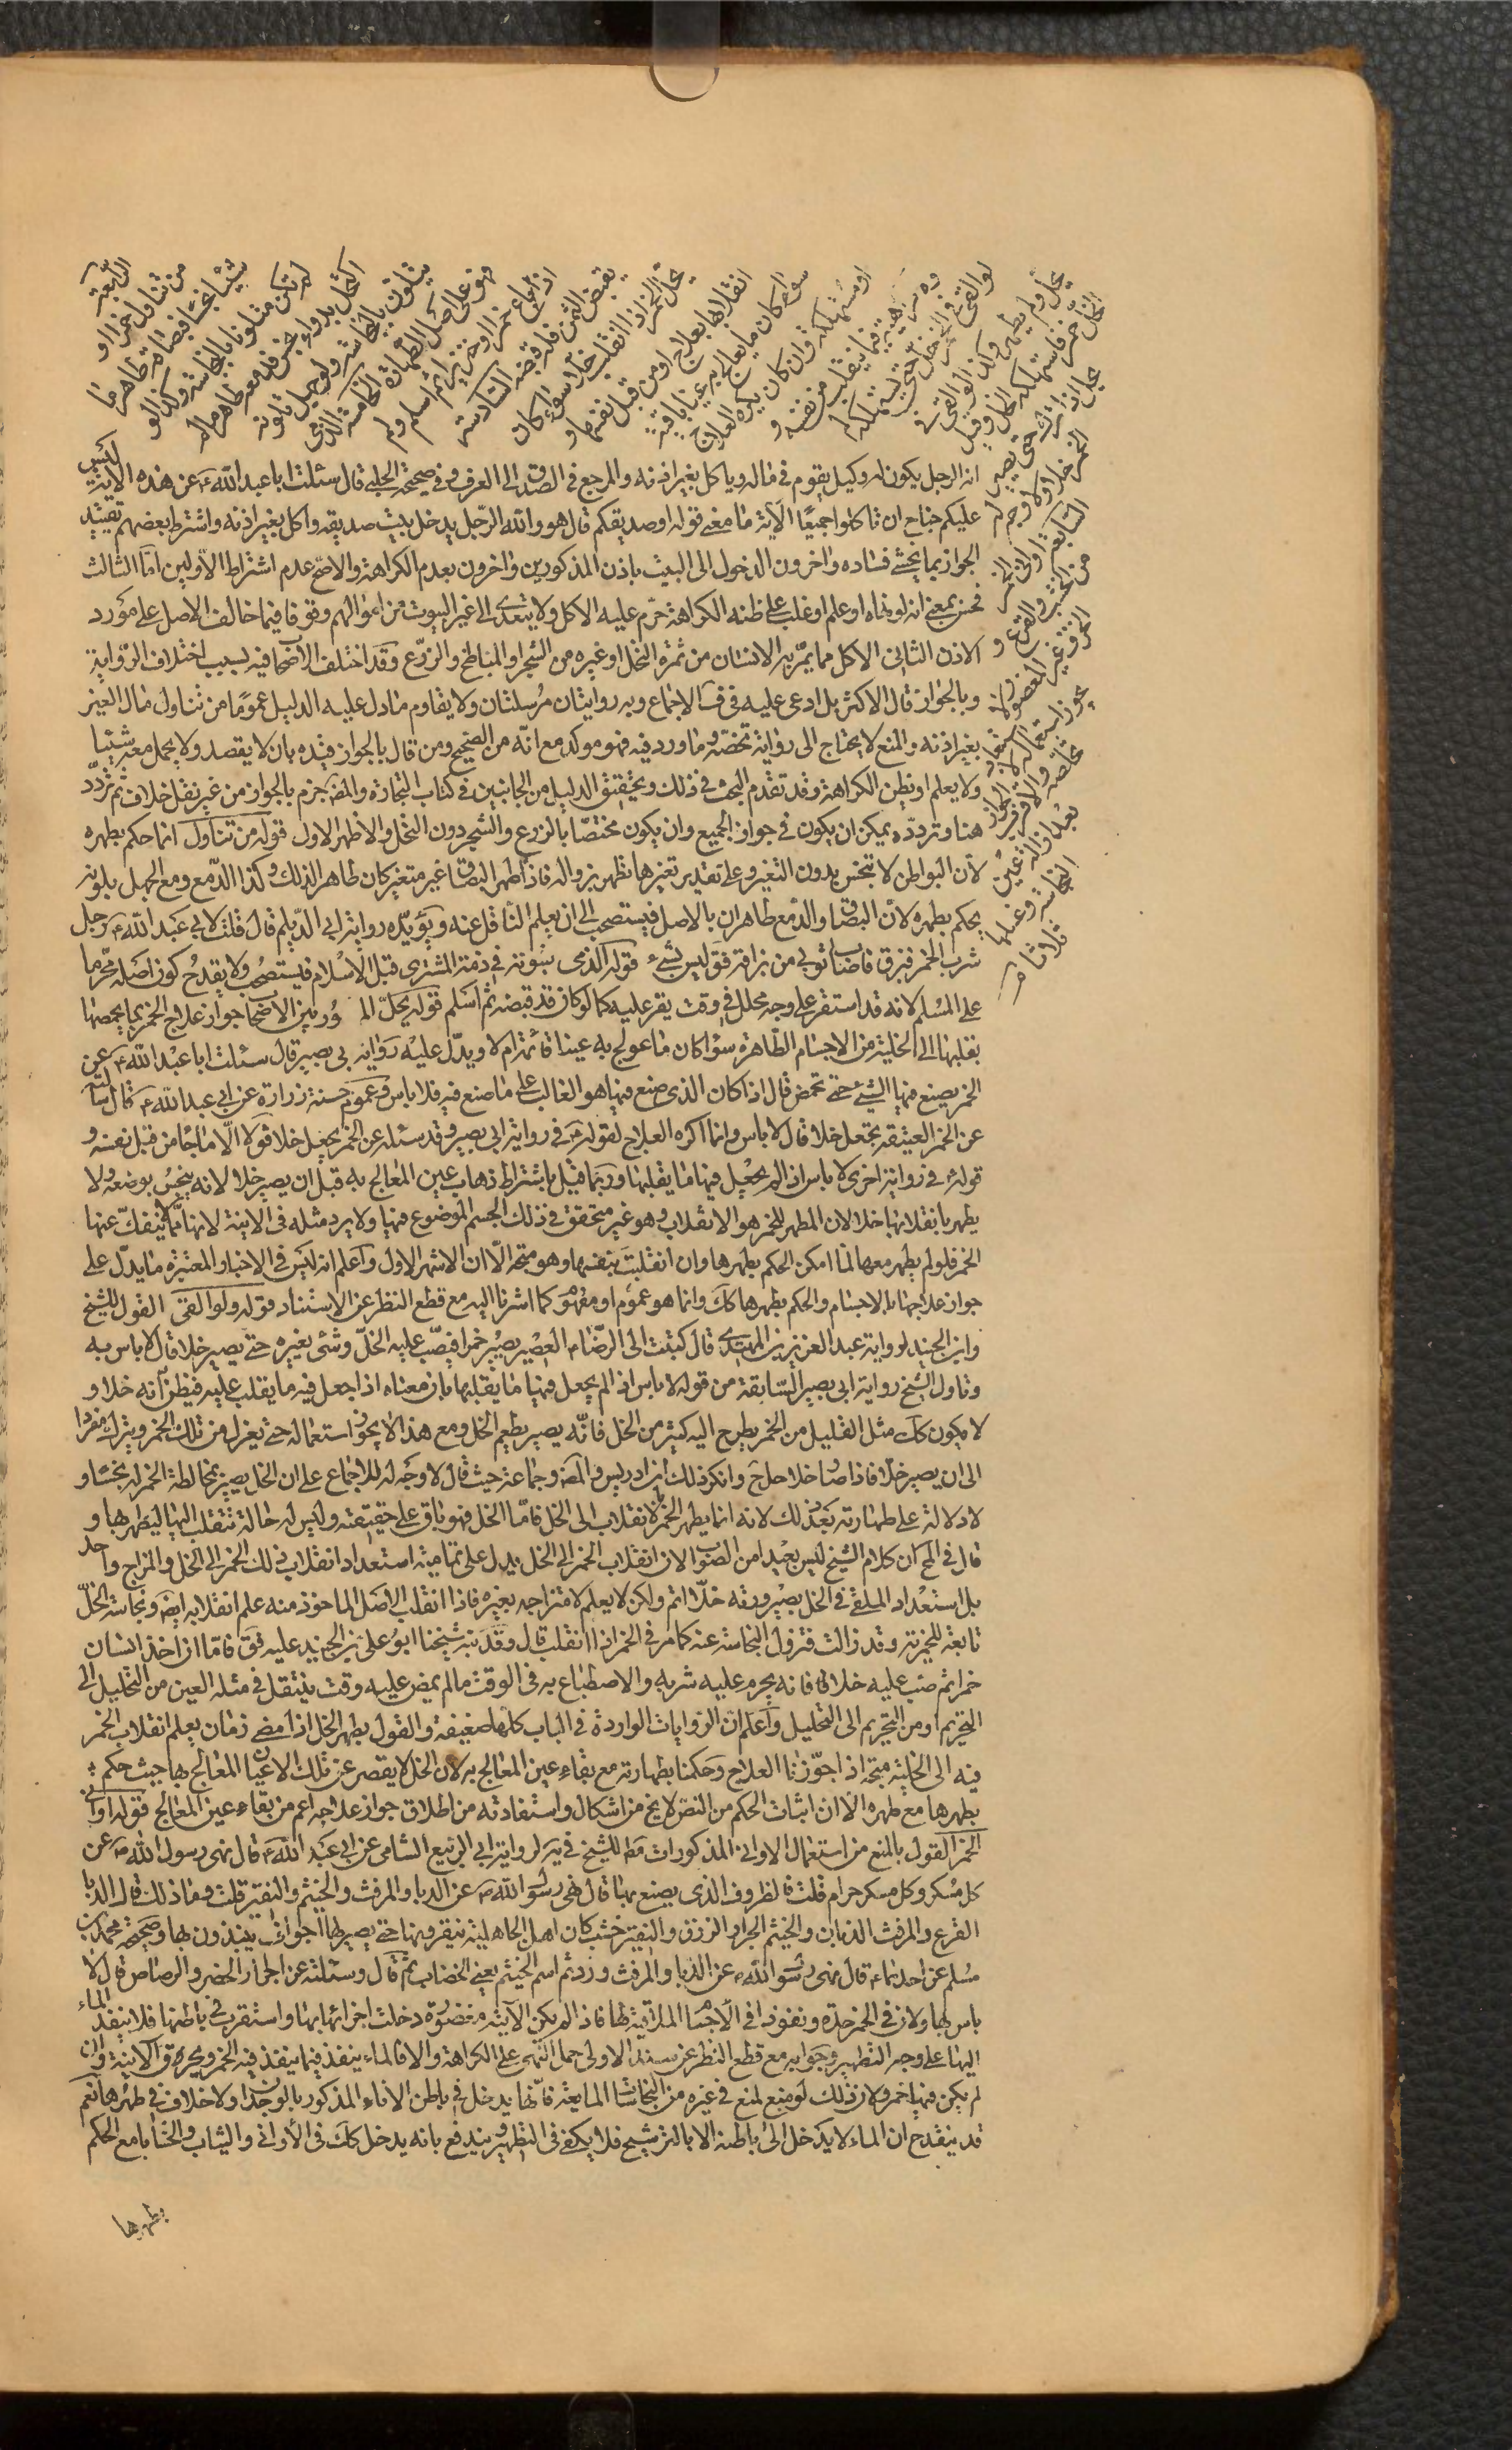 الرابعة
من تناول خمرا او
شيئا نجسا فبصاقه طاهر ما
لم تكن متلوثا بالنجاسة وكذا لو
اكتحل بدواء نجس فدمعه طاهر ما لم
يتلون بالنجاسة ولو جهل تلونه
فهو على اصل الطهارة الخامسة الذمي
اذا باع خمرا او خنزيرا ثم اسلم ولم
يقبض الثمن فله قبضه السادسة
تحل الخمر اذا انقلبت خلا سواء كان
انقلابها بعلاج او من قبل نفسها و
سواء كان ما يعالج به عينا باقية
او مستهلكة وان كان يكره العلاج
فيما ينقلب من نفسه و
لو القى في الخمر خل حتى تستهلكه لم
يحل ولم يطهر وكذا لو القى في
الخل خمر فاستهلكه الخل وقيل
يحل اذا ترك حتى يصير
الخمر خلا ولا وجه له
السابعة اوانى الخمر
من الخشب والقرع و
الخزف غير المغضور لا
يجوز استعماله لاستبعاد
تخلصه والاقرب الجواز
بعد ازالة عين
النجاسة وغسلها
ثلاثا
انه الرجل يكون له وكيل يقوم في ماله وياكل بغير اذنه والمرجع في الصديق الى العرف وفي صحيحة الحلبي قال سئلت ابا عبد الله ع عن هذه الاية ليس
عليكم جناح ان تاكلوا جميعا الآية ما معنى قوله او صديقكم قال هو والله الرجل يدخل بيت صديقه واكل بغير اذنه واشترط بعضهم تقييد
الجواز بما يخشى فساده واخرون الدخول الى البيت باذن المذكورين واخرون بعدم الكراهة والاصح عدم اشتراط الاولين اما الثالث
فحسن بمعنى انه لو نهاه او علم او غلب على ظنه الكراهة حرم عليه الاكل ولا يتعدى الى غير البيوت من اموالهم وقوفا فيما خالف الاصل على مورد
الاذن الثاني الاكل مما يمر به الانسان من ثمرة النخل او غيره من الشجر او المباطخ والزرع وقد اختلف الاصحاب فيه بسبب اختلاف الرواية
وبالجواز قال الاكثر بل ادعى عليه في ف الاجماع وبه روايتان مرسلتان ولا يقاوم ما دل عليه الدليل عموما من تناول مال الغير
بغير اذنه والمنع لا يحتاج الى رواية تخصه وما ورد فيه فهو موكد مع انه من الصحيح ومن قال بالجواز قيده بان لا يقصد ولا يحمل معه شيئا
ولا يعلم او يظن الكراهة وقد تقدم البحث في ذلك وتحقيق الدليل من الجانبين في كتاب التجارة والمص جزم بالجواز من غير نقل خلاف ثم تردد
هنا وتردده يمكن ان يكون في جواز الجميع وان يكون مختصا بالزرع والشجر دون النخل والاظهر الاول قوله من تناول انما حكم بطهره
لان البواطن لا تنجس بدون التغير وعلى تقدير تغيرها تطهر بزواله فاذا ظهر البصاق غير متغير كان طاهرا لذلك وكذا الدمع ومع الجهل بلونه
يحكم بطهره لان البصاق والدمع طاهران بالاصل فيستصحب الى ان يعلم الناقل عنه ويؤيده رواية ابي الديلم قال قلت لابي عبد الله ع رجل
شرب الخمر فبزق فاصاب ثوبي من بزاقه فق ليس بشيء قوله الذمى ثبوته في ذمة المشترى قبل الاسلام فيستصحب ولا يقدح كون اصله محرما
على المسلم لانه قد استقر على وجه محلل في وقت يقر عليه كما لو كان قد قبضه ثم اسلم قوله يحل بين الاصحاب جواز علاج الخمر بما يحمضها
بقلبها الى الخلية من الاجسام الطاهرة سواء كان ما عولج به عينا قائمة ام لا ويدل عليه رواية بي بصير قال سئلت ابا عبد الله ع عن
الخمر يصنع فيها الشئ حتى تحمض قال اذا كان الذى صنع فيها هو الغالب على ما صنع فيه فلا باس وعموم حسنة زرارة عن ابي عبد الله ع قال سئلته
عن الخمر العتيقة يجعل خلا قال لا باس وانما اكره العلاج لقوله ع في رواية ابي بصير وقد سئله عن الخمر يجعل خلا فق لا الا ما جاء من قبل نفسه و
قوله في رواية اخرى لا باس اذا لم يجعل فيها ما يقلبها وربما قيل باشتراط ذهاب عين المعالج به قبل ان يصير خلا لانه ينجس بوضعه ولا
يطهر بانقلابها خلا لان المطهر للخمر هو الانقلاب وهو غير متحقق في ذلك الجسم الموضوع فيها ولا يرد مثله في الانية لانها مما لا ينفك عنها
الخمر فلو لم يطهر معها لما امكن الحكم بطهرها وان انقلبت بنفسها وهو متجه الا ان الاشهر الاول واعلم انه ليس في الاخبار المعتبرة ما يدل على
جواز علاجها بالاجسام والحكم بطهرها كك وانما هو عموم او مفهوم كما اشرنا اليه مع قطع النظر عن الاستناد قوله ولو القى القول للشيخ
وابن الجنيد لرواية عبد العزيز بن المهتدى قال كتبت الى الرضا ع العصير يصير خمرا فيصب عليه الخل وشئ يغيره حتى يصير خلا قال لا باس به
وتاول الشيخ رواية ابي بصير السابقة من قوله لا باس اذا لم يجعل فيها ما يقلبها بان معناه اذا جعل فيه ما يقلب عليه فيظن انه خلا و
لا يكون كك مثل القليل من الخمر يطرح اليه كثير من الخل فانه يصير بطعم الخل ومع هذا لا يجوز استعماله حتى يعزل من تلك الخمر ويترك مفردا
الى ان يصير خلا فاذا صار خلا حل ح وانكر ذلك ابن ادريس والمص وجماعة حيث قال لا وجه له للاجماع على ان الخل يصير بمخالطة الخمر له نجسا و
لا دلالة على طهارته بعد ذلك لانه انما يطهر الخمر بالانقلاب الى الخل فاما الخل فهو باق على حقيقته وليس له حالة تنقلب اليها ليطهر بها و
قال في المخ ان كلام الشيخ ليس بعيدا من الصواب لان انقلاب الخمر الى الخل يدل على تمامية استعداد انقلاب ذلك الخمر الى الخل والمزاج واحد
بل استعداد الملقى في الخل بصيرورته خلا اتم ولكن لا يعلم لامتزاجه بغيره فاذا انقلب الاصل الماخوذ منه علم انقلابه ايض ونجاسة الخل
تابعة للخمرية وقد زالت فتزول النجاسة عنه كما مر في الخمر اذا انقلب قال وقد نبه شيخنا ابو على بن الجنيد عليه فق فاما ان اخذ انسان
خمرا ثم صب عليه خلا فانه يحرم عليه شربه والاصطباغ به في الوقت ما لم يمض عليه وقت ينتقل في مثله العين من التحليل الى
التحريم او من التحريم الى التحليل واعلم ان الروايات الواردة في الباب كلها ضعيفة والقول بطهر الخل اذا مضى زمان يعلم انقلاب الخمر
فيه الى الخلية متجه اذا جوزنا العلاج وحكمنا بطهارته مع بقاء عين المعالج به لان الخل لا يقصر عن تلك الاعيان المعالج بها حيث حكم
بطهرها مع طهره الا ان اثبات الحكم من النص لا يخ من اشكال واستفادته من اطلاق جواز علاجه اعم من بقاء عين المعالج قوله اوانى
الخمر القول بالمنع من استعمال الاواني المذكورات مط للشيخ في يه لرواية ابي الربيع الشامي عن ابي عبد الله ع قال نهى رسول الله ص عن
كل مسكر وكل مسكر حرام قلت فالظروف الذى يصنع بها قال نهى رسول الله ص عن الدبا والمزفت والحنتم والنقير قلت وما ذلك قال الدبا
القرع والمزفت الدنان والحنتم الجرار الزرق والنقير خشب كان اهل الجاهلية ينقرونها حتى يصير لها اجواف ينبذون بها وصحيحة محمد بن
مسلم عن احدهما ع قال نهى رسول الله ص عن الدبا والمزفت وزدتم انتم الحنتم يعنى الغضار ثم قال وسئلته عن الجرار الخضر والرصاص قال لا
باس بها ولان في الخمر حدة ونفوذا في الاجسام الملاقية لها فاذا لم يكن الآنية مغضورة دخلت اجزائها بها واستقرت في باطنها فلا ينفذ الماء
اليها على وجه التطهير وجوابه مع قطع النظر عن سند الاولى حمل النهى على الكراهة والا فالماء ينفذ فيما ينفذ فيه الخمر ويكره في الانية وان
لم يكن فيها خمر ولان ذلك لو منع لمنع في غيره من النجاسات المايعة فانها يدخل في باطن الاناء المذكور بالوجدان ولا خلاف في طهرها نعم
قد ينقدح ان الماء لا يدخل الى باطنه الا بالترشيح فلا يكفى في التطهير ويندفع بانه يدخل كك في الأوانى والثياب والحشايا مع الحكم
بطهرها